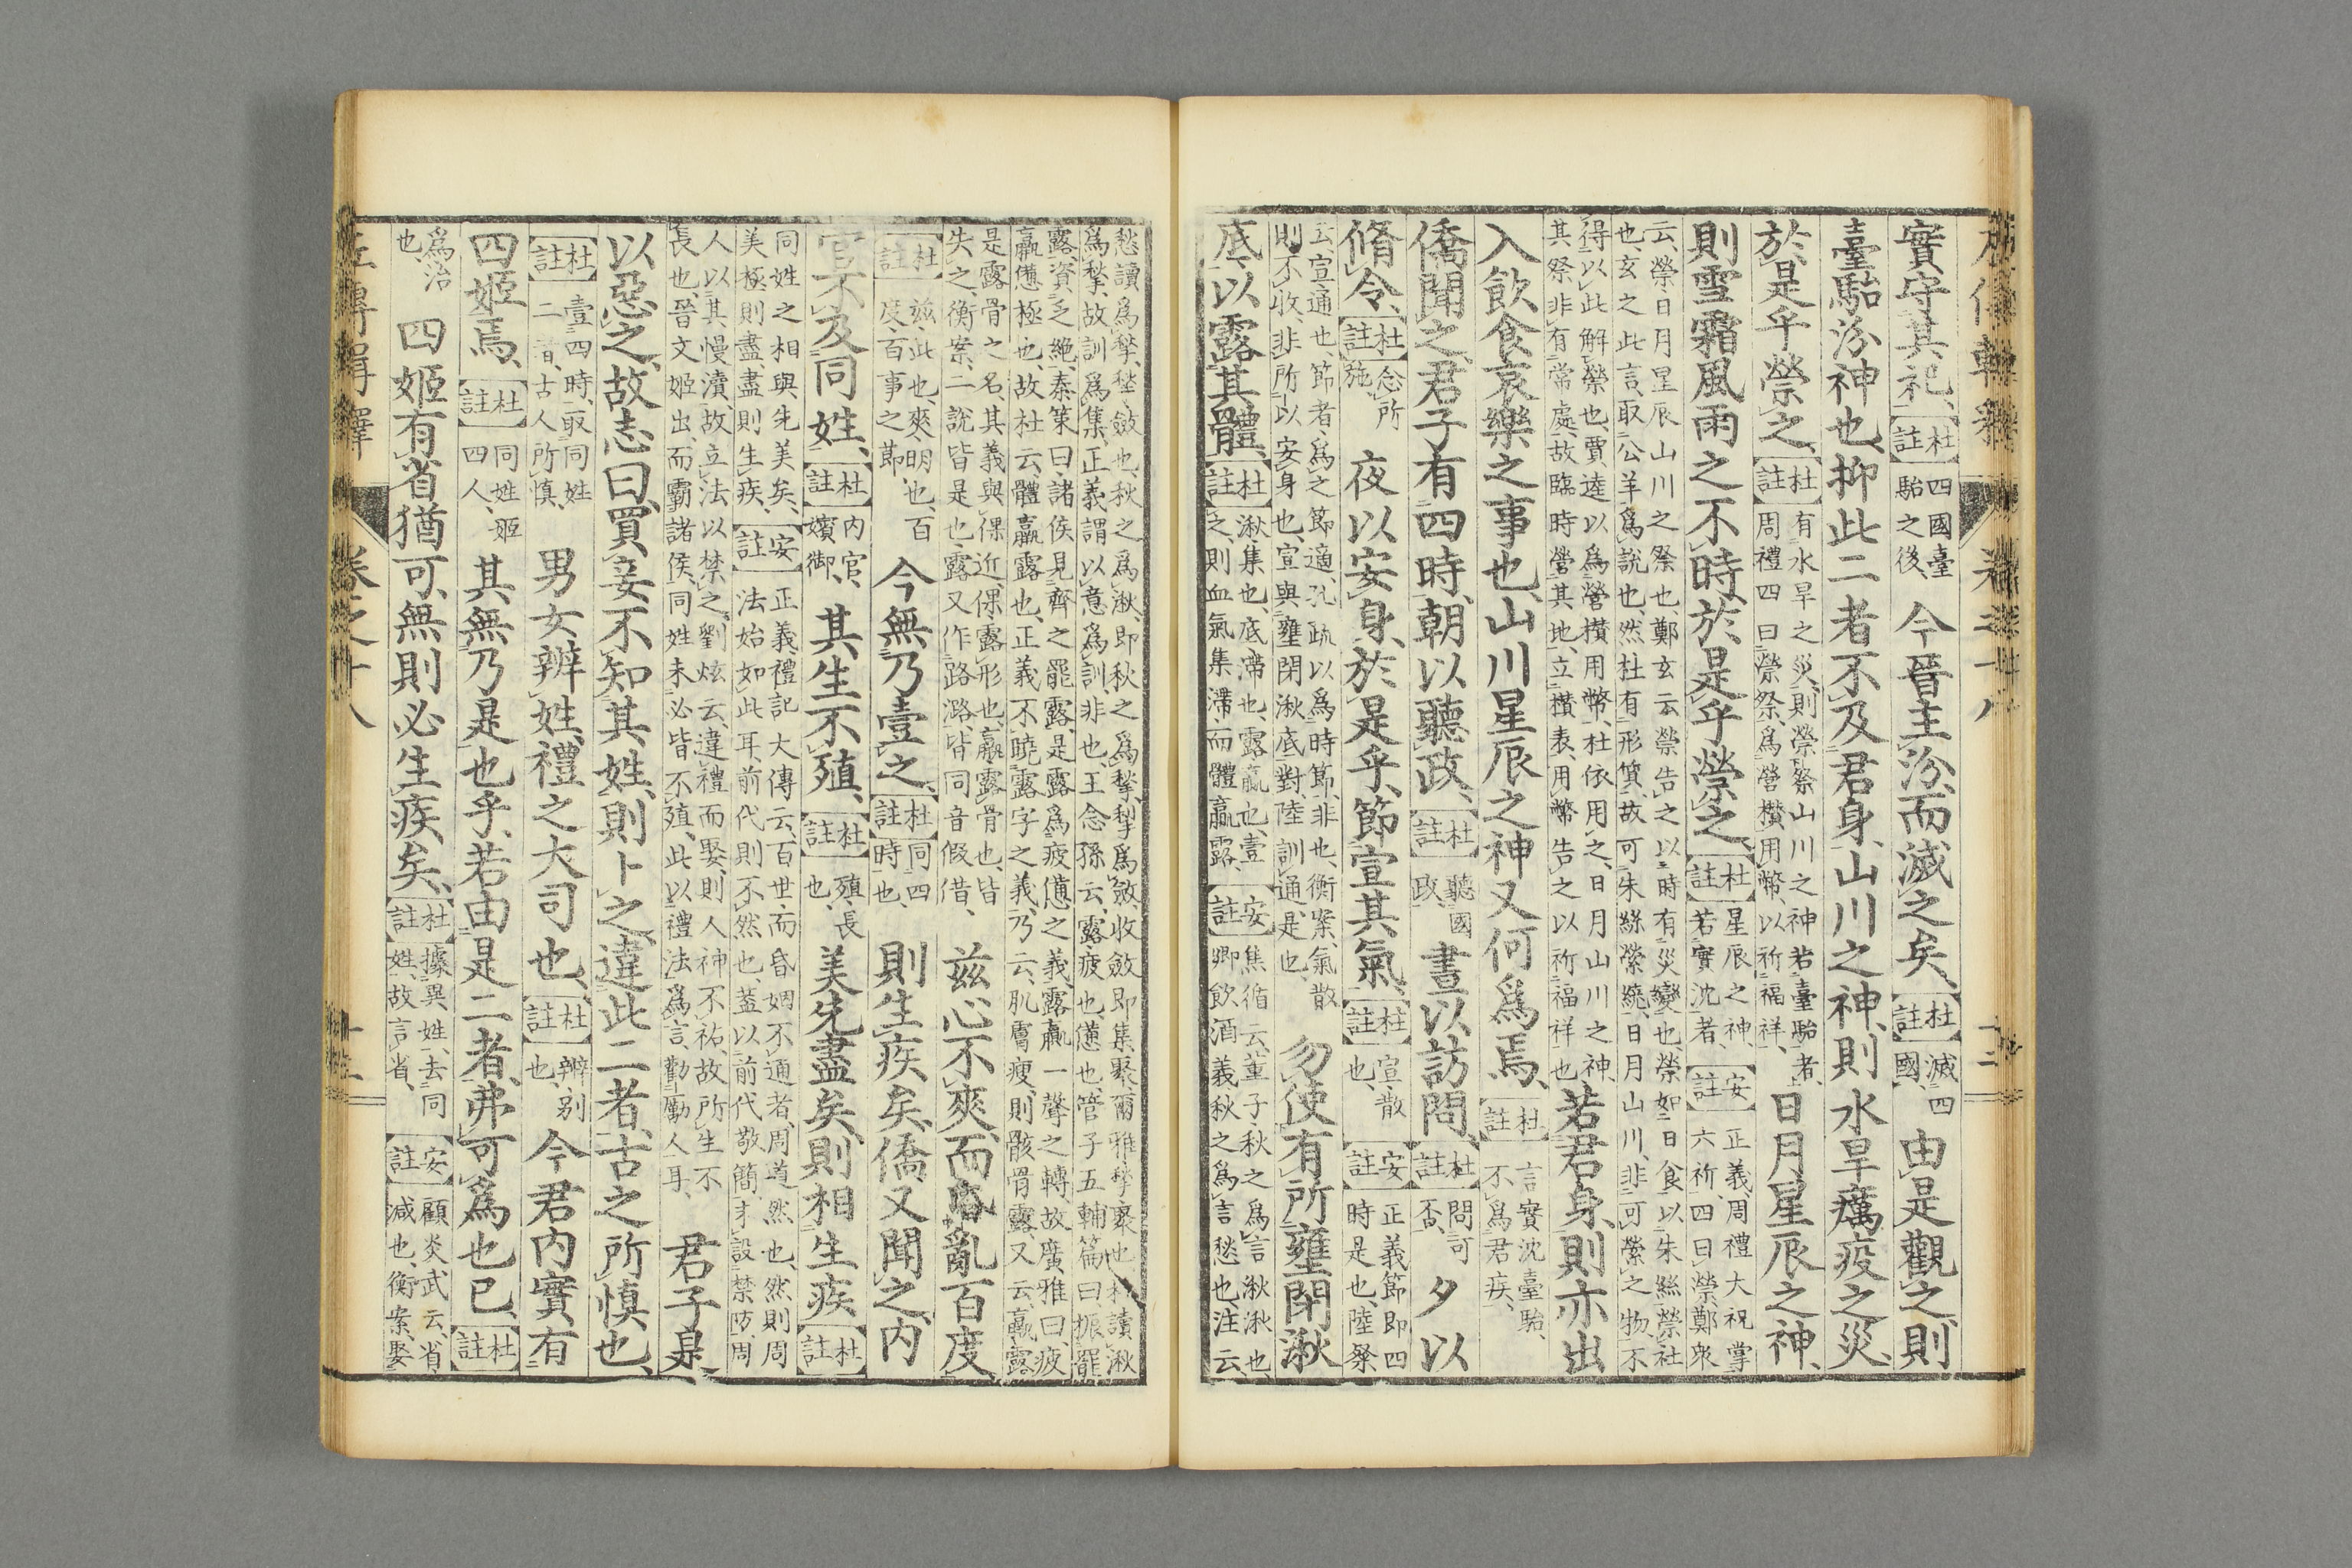 實守其祀、杜註四國臺駘之後、今晉主汾而滅之矣、杜註滅四國、由是觀之、則
臺駘汾神也、抑此二者不及君身、山川之神、則水旱癘疫之災、
於是乎禜之、杜註有水旱之災、則禜祭山川之神若臺駘者、周禮四曰禜祭、爲營欑用幣、以祈福祥、日月星辰之神、
則雪霜風雨之不時、於是乎禜之、杜註星辰之神、若實沈者、安註正義、周禮大祝掌六祈、四曰禜、鄭衆
云、禜日月星辰山川之祭也、鄭玄云、禜告之以時有災變也、禜如日食以朱絲禜社
也、玄之此言、取公羊爲說也、然杜有形質、故可朱絲縈繞、日月山川、非可縈之物、不
得以此解禜也、賈逵以爲營欑用幣、杜依用之、日月山川之神、
其祭非有常處、故臨時營其地、立欑表、用幣告之以祈福祥也、若君身、則亦出
入飲食哀樂之事也、山川星辰之神又何爲焉、杜註言實沈臺駘、不爲君疾、
僑聞之、君子有四時、朝以聽政、杜註聽國政、晝以訪問、杜註問可否、夕以
脩令、杜註念所施、夜以安身、於是乎、節宣其氣、杜註宣、散也、安註正義節即四時是也、陸粲
云、宣通也、節者、爲之節適、孔疏以爲時節、非也、衡案、氣散
則不收、非所以安身也、宣與壅閉湫底對、陸訓通是也、勿使有所壅閉湫
底、以露其體、杜註湫集也、底滯也、露羸也、壹之、則血氣集滯、而體羸露、安註焦循云、董子、秋之爲言湫湫也、鄉飲酒義秋之爲言愁也、注云、
愁讀爲揫、揫斂也、秋之爲湫、即秋之爲揫、揫爲斂、收斂即集聚、爾雅揫聚也、讀湫
爲揫、故訓爲集、正義謂以意爲訓、非也、王念孫云、露疲也、憊也、管子五輔篇曰、振罷
露、資乏絶、秦策曰、諸侯見齊之罷露、是露爲疲憊之義、露羸一聲之轉、故廣雅曰、疲
羸憊極也、故杜云、體羸露也、正義不曉露字之義、乃云、肌膚瘦、則骸骨露、又云、羸露
是露骨之名、其義與倮近、倮露形也、羸露骨也、皆
失之、衡案、二說皆是也、露又作路潞、皆同音假借、茲心不爽、而昏亂百度、
杜註茲、此也、爽、明也、百度、百事之節、今無乃壹之、杜註同四時也、則生疾矣、僑又聞之、內
官不及同姓、杜註內官、嬪御、其生不殖、杜註殖、長也、美先盡矣、則相生疾、杜註
同姓之相與先美矣、美極則盡、盡則生疾、安註正義、禮記大傳云、百世而昏姻不通者、周道然也、然則周法始如此耳、前代則不然也、蓋以前代敬簡、未設禁防、周
人以其慢瀆、故立法以禁之、劉炫云、違禮而娶、則人神不祐、故所生不
長也、晉文姬出、而霸諸侯、同姓未必皆不殖、此以禮法爲言、勸勵人耳、君子是
以惡之、故志曰、買妾、不知其姓、則卜之、違此二者、古之所慎也、
杜註壹四時、取同姓二者、古人所慎、男女辨姓、禮之大司也、杜註辨、別也、今君內實有
四姬焉、杜註同姓姬四人、其無乃是也乎、若由是二者、弗可爲也已、杜註
爲治也、四姬有省猶可、無則必生疾矣、杜註據異姓、去同姓、故言省、安註顧炎武云、省減也、衡案、娶
左傳輯釋 卷之十八